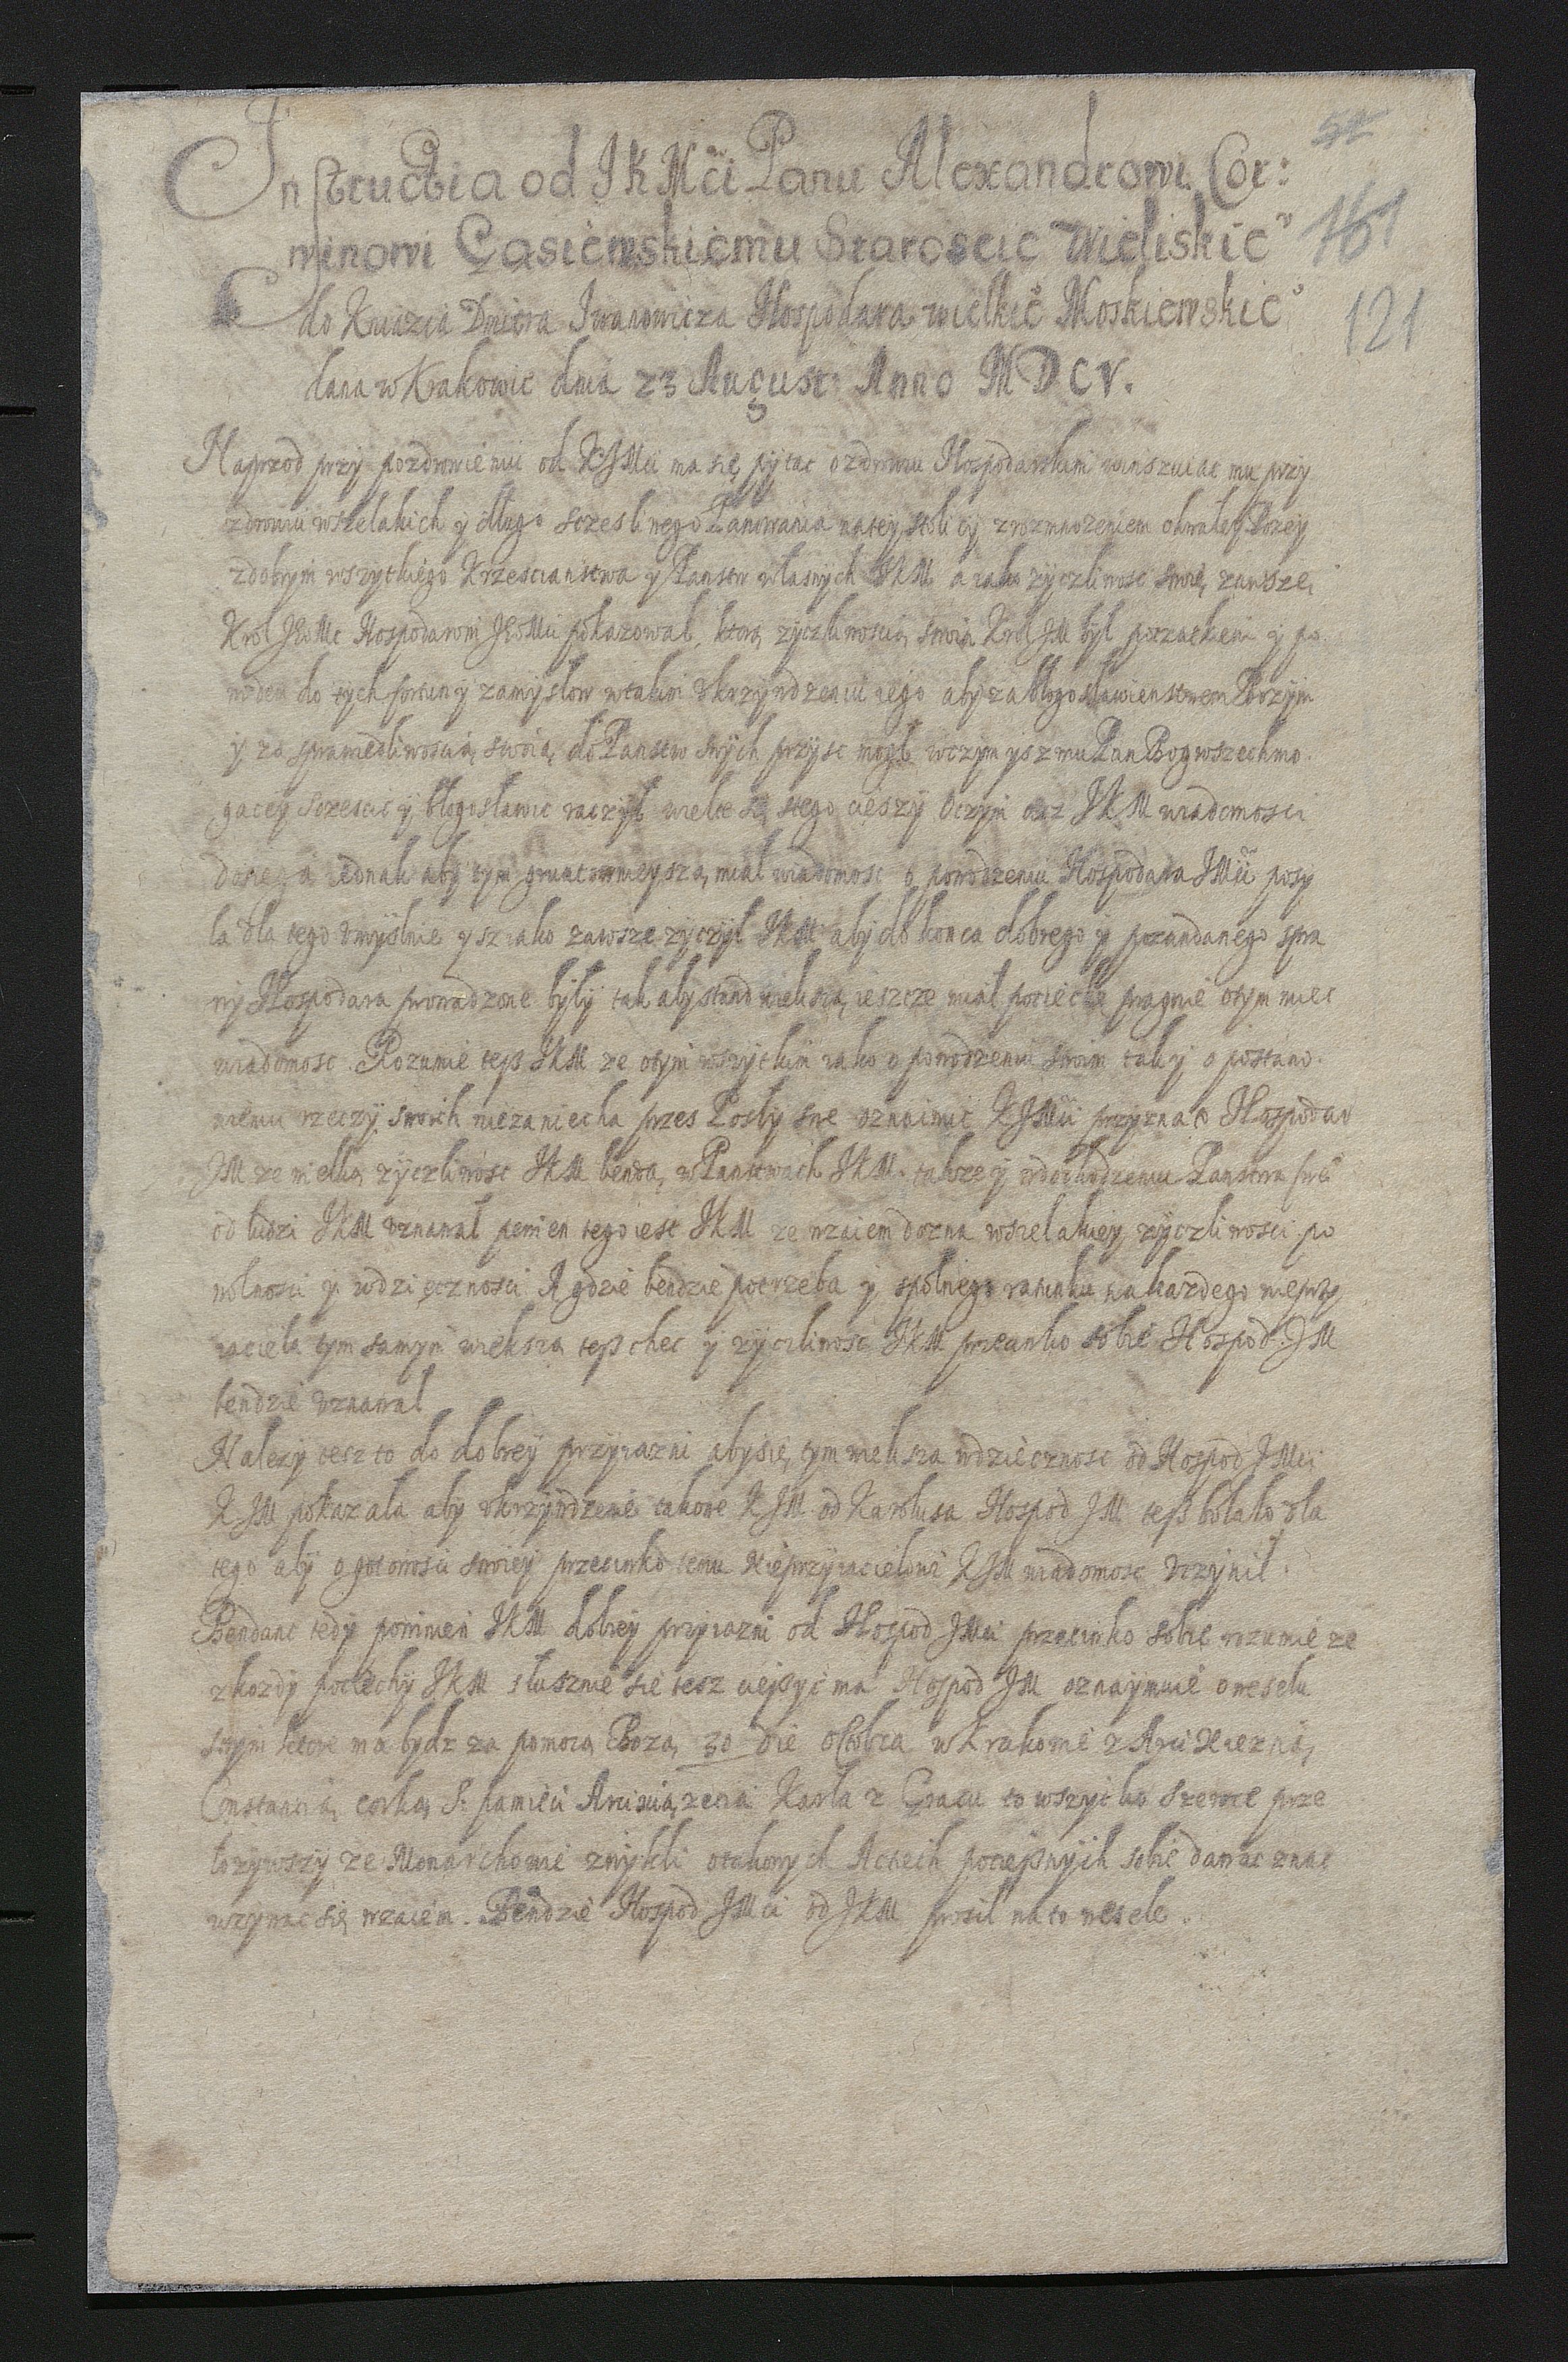 52
Instructia od JKMci Panu Alexandrowi Cor:
winowi Gąsiewskiemu Staroscie Wieliskieo
161
do Kniazia Dmitra Iwanowicza Hospodara wielkieo Moskiewskieo
121
dana w Krakowie dnia 23 August: Anno MDCV.
Naprzod przy pozdrowieniu od KJMci ma się pytac o zdrowiu Hospodarskim winszuiąc mu przy
zdrowiu wszelakich y długo sczesliwego Panowania na tey stolicy z rozmnozeniem chwały Bozey
z dobrym wszytkiego Krzescianstwa y Panstw własnych JKM a iako zyczliwosc swoię zawsze
Krol JeoMc Hospodarowi JeoMci pokazował, ktorą zyczliwoscią swoią Krol JM był początkiem y po
wodem do tych fortuny zamysłow w takim ukrzywdzeniu iego aby za błogosławienstwem Bozym
y za sprawiedliwoscią swoią do Panstw swych przysc mogł w czym ysz mu Pan Bog wszechmo
gący sczescic y błogosławic raczył wielce się s tego cieszy O czym acz JKM wiadomosci
donegá iednak aby tym gruntownieyszą miał wiadomosc o powodzeniu Hospodara JMci posy
la dla tego umyslnie y sz iako zawsze zyczył JKM aby do konca dobrego y pozandanego spra
wy Hospodara prowadzone były tak aby stand wieksza ieszcze miał pociechę pragnie o tym miec
wiadomosc. Rozumie tesz JKM ze o tym wszytkim iako o powodzeniu swoim tak y o postano
wieniu rzeczy swoich niezaniecha przes Posły swe oznaimic KJMci przyzna o Hospodar
JM ze wielką zyczliwosc JKM bendą w Panstwach JKM takze y w dochodzeniu Panstwa sweo
od ludzi JKM uznawał pewien tego iest JKM ze wzaiem dozna wszelakiey zyczliwosci po
wolnosci y wdzięcznosci A gdzie bendzie potrzeba y spolnego ratunku na kazdego nieprzy
iaciela tym samym wieksza tesz chec y zyczliwosc JKM przeciwko sobie Hospod. JM
bendzie uznawał
Nalezy tesz to do dobrey przyiazni aby się tym wieksza wdziecznosc od Hospod JMci
KJM pokazała aby ukrzywdzenie takowe KJM od Karolusa Hospod JM tesz bolało dla
tego aby o gotowosci swoiey przeciwko temu nieprzyiacielowi KJM wiadomosc uczynił.
Bendanc tedy powinien JKM dobrey przyiazni od Hospod JMci przeciwko sobie rozumie ze
z kozdy pociechy JKM słusznie sie tesz cieszyc ma Hospod JM oznaymuie o weselu
swym ktore ma bydz za pomocą Bozą 30 die octobra w Krakowie z Arci Xiezną
Constancią corką S: pamieci Arcixiązecia Karla z Gracu to wszytko szerzei prze
łozywszy ze Monarchowie zwykli o takowych Actiech pociesznych sobie dawac znac
wzywac się wzaiem. Bendzie Hospod JMci od JKM prosił na to wesele.